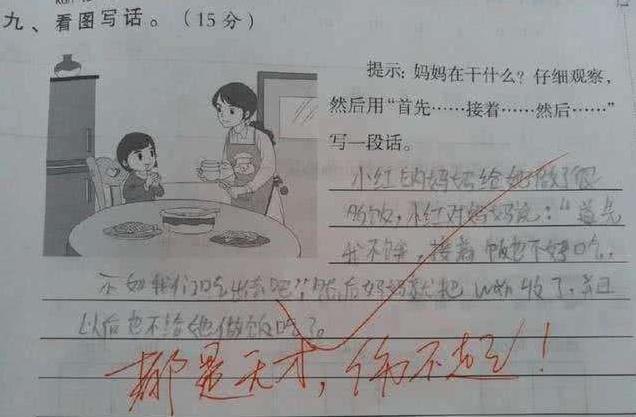 九、看图写话。（15分）
提示：妈妈在干什么？仔细观察，
然后用“首先……接着……然后……”
写一段话。
小红的妈妈给她做了很
多饭，小红对妈妈说：“首先
我不饿，接着饭也不好吃，
不如我们吃出去吧”，然后妈妈就把 wǎn 收了，并且
以后也不给她做饭吃了。
都是天才，伤不起！